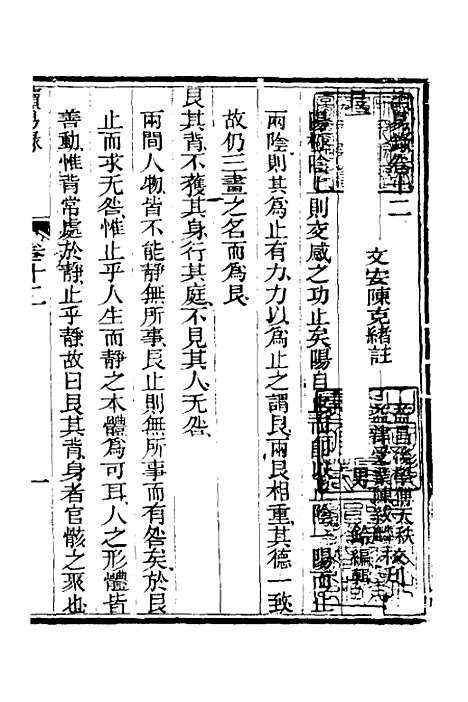 讀易錄卷十二
文安陳克緒註
男
鈴編輯
陽極陰上則交感之功止矣陽自止而卽以止陰一陽而止
兩陰則其為止有力力以為止之謂艮兩艮相重其德一致
故仍三畫之名而為艮
艮其背不獲其身行其庭不見其人无咎
兩間人物皆不能靜無所事艮止則無所事而有咎矣於艮
止而求无咎惟止乎人生而靜之本體為可耳人之形體皆
善動惟背常處於靜止乎靜故曰艮其背身者官骸之聚也
讀易錄
卷十二
一